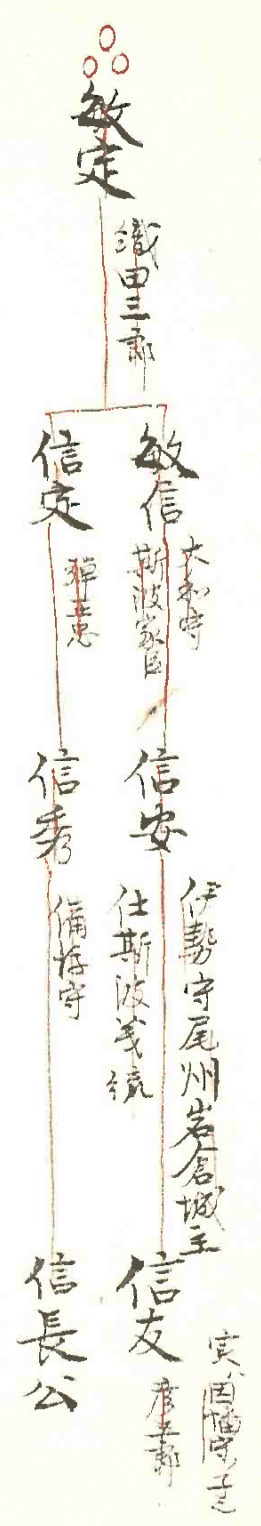 敏定
織田三郎
敏信
大和守
斯波家臣
信安
伊勢守尾州岩倉城主
仕斯波義統
信友
実ハ因幡守ノ子也
彦五郎
信定
弾正忠
信秀
備後守
信長公